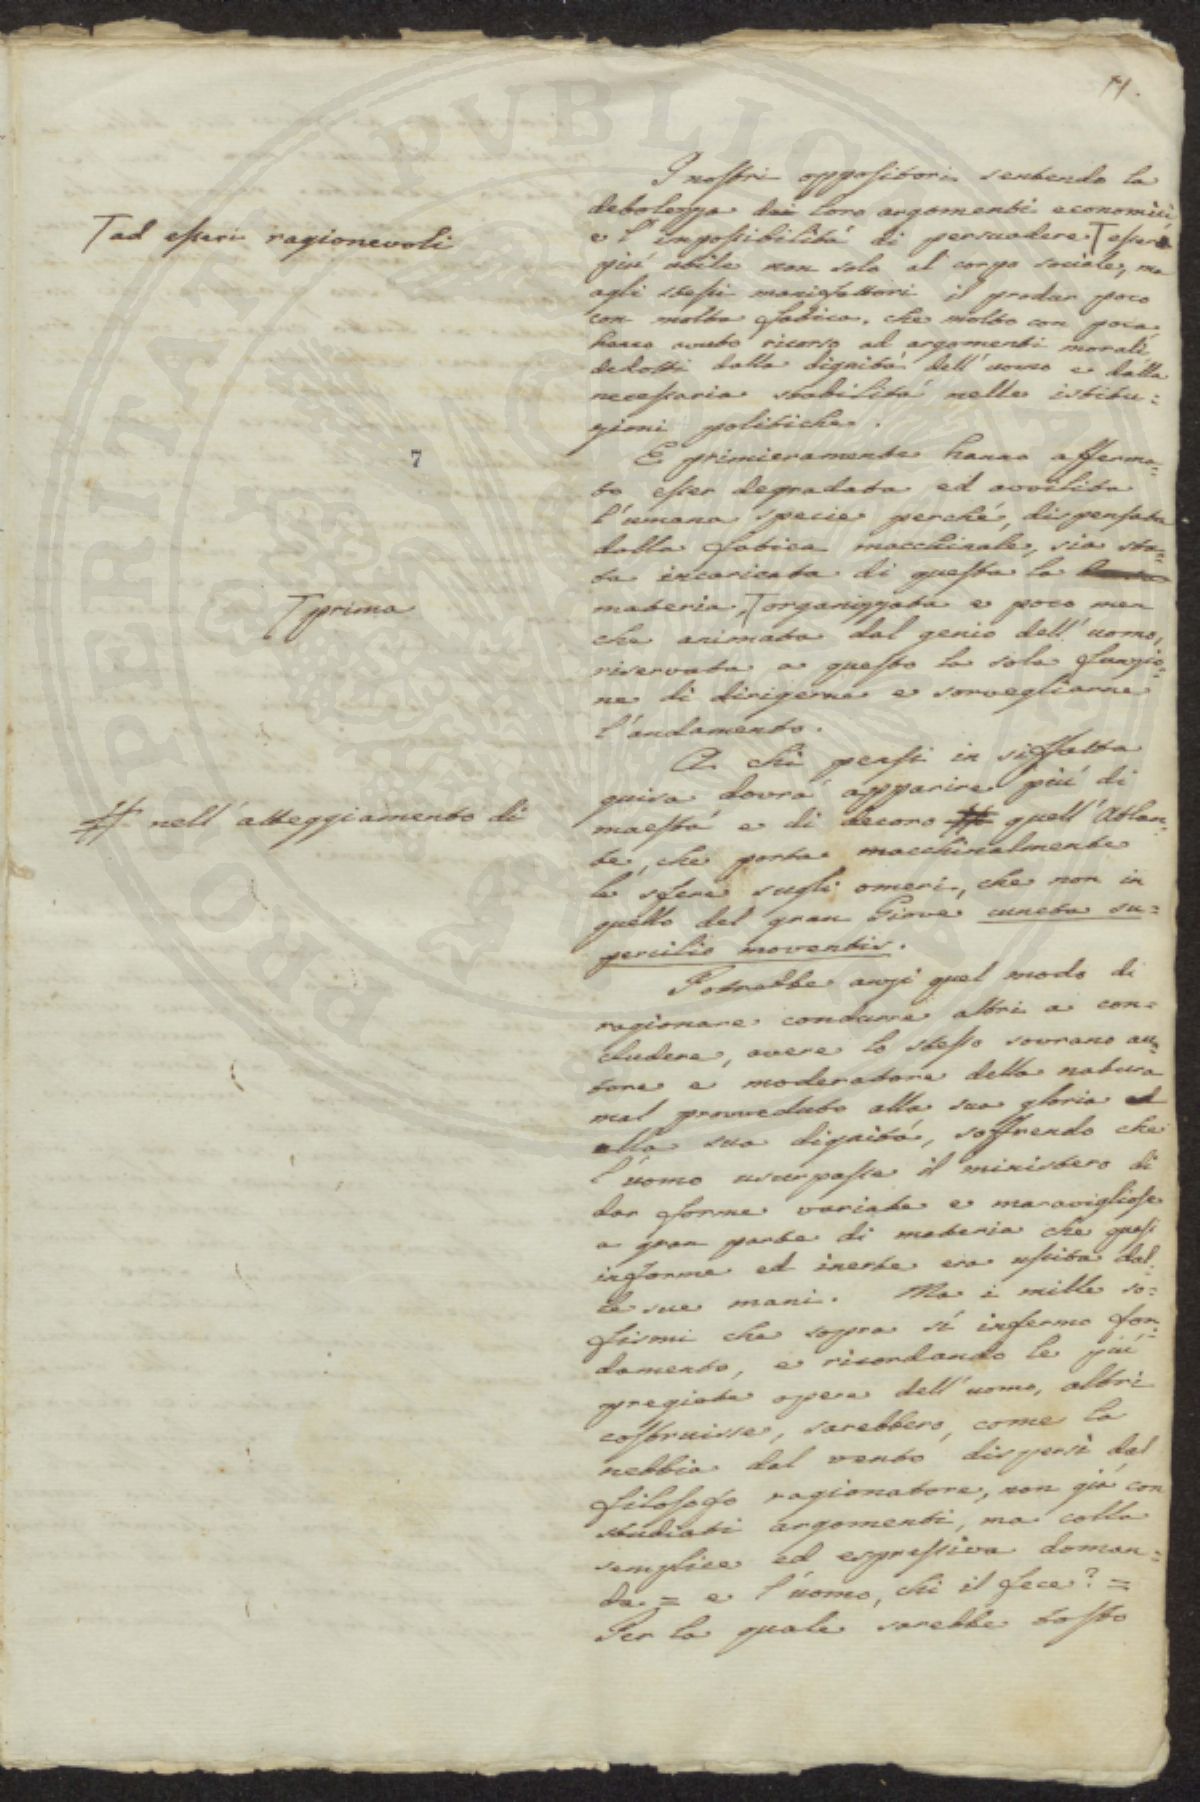 71.
I nostri oppositori sentendo la
debolezza dei loro argomenti economici
e l'impossibilità di persuadere ⎾ essere
più utile non solo al corpo sociale, ma
agli stessi manifattori il produr poco
con molta fatica, che molto con poca,
hanno avuto ricorso ad argomenti morali
dedotti dalla dignità dell'uomo e dalla
necessaria stabilità nelle istitu=
zioni politiche.
⎾ ad esseri ragionevoli
7
E primieramente hanno afferma=
to esser degradata ed avvilita
l'umana specie perché, dispensata
dalla fatica macchinale, sia sta=
ta incaricata di questa la
materia, ⎾ organizzata e poco men
che animata dal genio dell'uomo,
riservata a questo la sola funzio=
ne di dirigerne e sorvegliarne
l'andamento.
⎾ prima
A chi pensi in siffatta
guisa dovrà apparire più di
maestà e di decoro # quell'Atlan=
te, che porta macchinalmente
le sfere sugli omeri, che non in
quello del gran Giove cuncta su=
percilio moventis.
# nell'atteggiamento di
Potrebbe anzi quel modo di
ragionare condurre altri a con=
cludere, avere lo stesso sovrano au=
tore e moderatore della natura
mal provveduto alla sua gloria ed
alla sua dignità, soffrendo che
l'uomo usurpasse il ministero di
dar forme variate e maravigliose
a gran parte di materia che quasi
informe ed inerte era uscita dal=
le sue mani. Ma i mille so=
fismi che sopra sì infermo fon=
damento, e ricordando le più
pregiate opere dell'uomo, altri
costruisse, sarebbero, come la
nebbia dal vento dispersi dal
filosofo ragionatore, non già con
studiati argomenti, ma colla
semplice ed espressiva doman=
da = e l'uomo, chi il fece? =
Per la quale sarebbe tosto
PROSPERITATI PUBLICAE